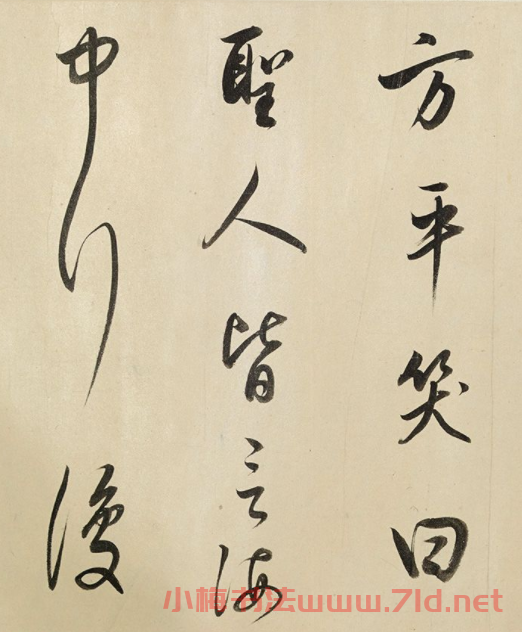 方平笑曰
聖人皆言海
中行復
小梅书法www.7ld.net